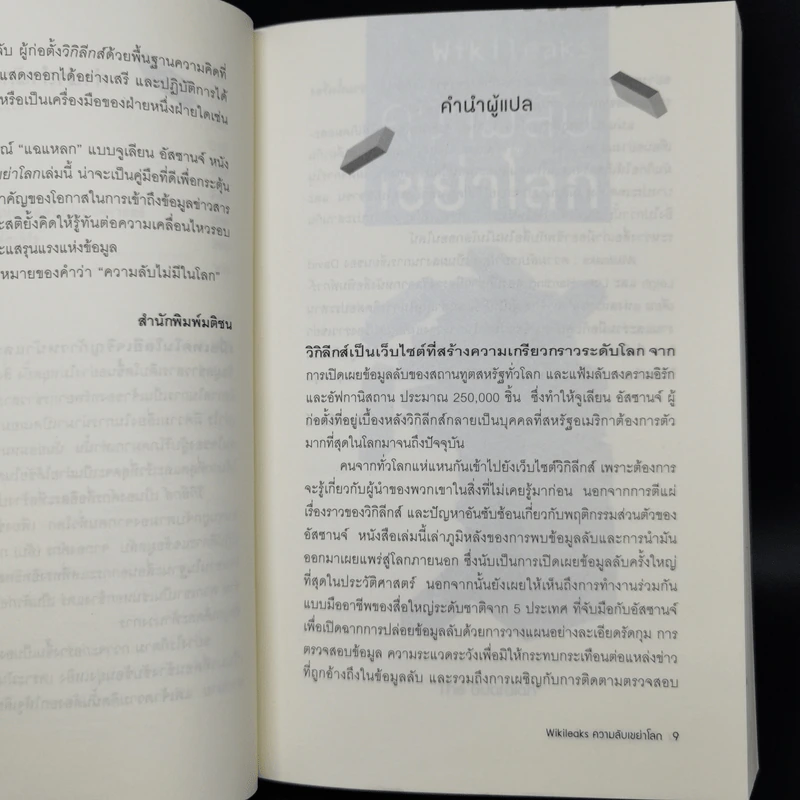 ลับ ผู้ก่อตั้งวิกิลีกส์ด้วยพื้นฐานความคิดที่
แสดงออกได้อย่างเสรี และปฏิบัติการได้
หรือเป็นเครื่องมือของฝ่ายหนึ่งฝ่ายใดเช่น
ณ์ “แฉแหลก” แบบจูเลียน อัสซานจ์ หนัง
เขย่าโลกเล่มนี้ น่าจะเป็นคู่มือที่ดีเพื่อกระตุ้น
สำคัญของโอกาสในการเข้าถึงข้อมูลข่าวสาร
สติยั้งคิดให้รู้ทันต่อความเคลื่อนไหวรอบ
แสรุนแรงแห่งข้อมูล
หมายของคำว่า “ความลับไม่มีในโลก”
สำนักพิมพ์มติชน
คำนำผู้แปล
วิกิลีกส์เป็นเว็บไซต์ที่สร้างความเกรียวกราวระดับโลก จาก
การเปิดเผยข้อมูลลับของสถานทูตสหรัฐทั่วโลก และแฟ้มลับสงครามอิรัก
และอัฟกานิสถาน ประมาณ 250,000 ชิ้น ซึ่งทำให้จูเลียน อัสซานจ์ ผู้
ก่อตั้งที่อยู่เบื้องหลังวิกิลีกส์กลายเป็นบุคคลที่สหรัฐอเมริกาต้องการตัว
มากที่สุดในโลกมาจนถึงปัจจุบัน
คนจากทั่วโลกแห่แหนกันเข้าไปยังเว็บไซต์วิกิลีกส์ เพราะต้องการ
จะรู้เกี่ยวกับผู้นำของพวกเขาในสิ่งที่ไม่เคยรู้มาก่อน นอกจากการตีแผ่
เรื่องราวของวิกิลีกส์ และปัญหาอันซับซ้อนเกี่ยวกับพฤติกรรมส่วนตัวของ
อัสซานจ์ หนังสือเล่มนี้เล่าภูมิหลังของการพบข้อมูลลับและการนำมัน
ออกมาเผยแพร่สู่โลกภายนอก ซึ่งนับเป็นการเปิดเผยข้อมูลลับครั้งใหญ่
ที่สุดในประวัติศาสตร์ นอกจากนั้นยังเผยให้เห็นถึงการทำงานร่วมกัน
แบบมืออาชีพของสื่อใหญ่ระดับชาติจาก 5 ประเทศ ที่จับมือกับอัสซานจ์
เพื่อเปิดฉากการปล่อยข้อมูลลับด้วยการวางแผนอย่างละเอียดรัดกุม การ
ตรวจสอบข้อมูล ความระแวดระวังเพื่อมิให้กระทบกระเทือนต่อแหล่งข่าว
ที่ถูกอ้างถึงในข้อมูลลับ และรวมถึงการเผชิญกับการติดตามตรวจสอบ
Wikileaks ความลับเขย่าโลก 9